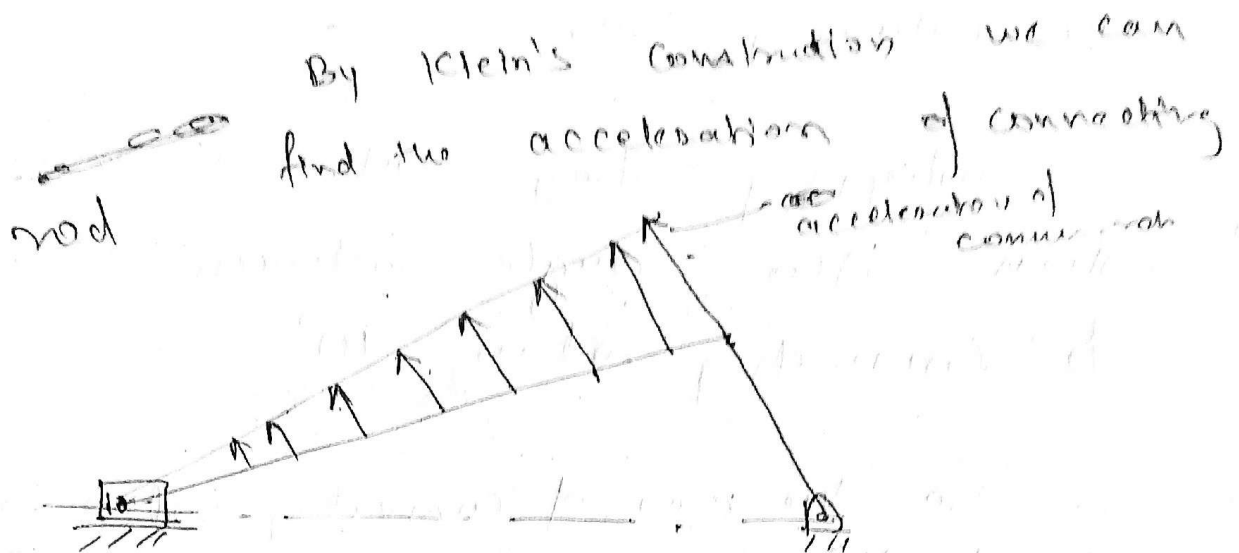 By Klein's Construction we can
find the acceleration of connecting
rod
acceleration of